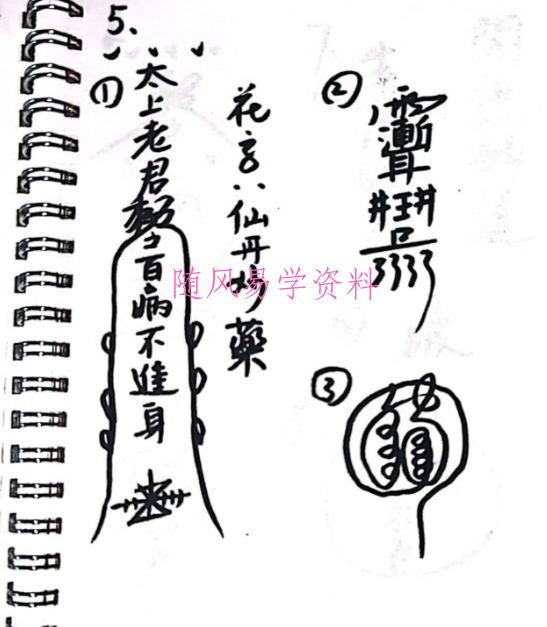 5、
①
太上老君敕令百病不進身
花言八仙丹妙藥
②
③
随风易学资料